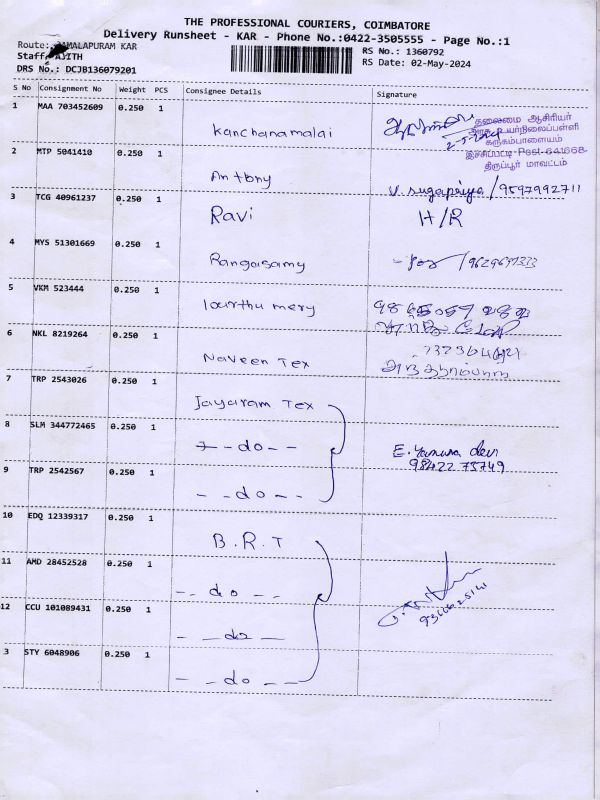 THE PROFESSIONAL COURIERS, COIMBATORE
Delivery Runsheet - KAR - Phone No.:0422-3505555 - Page No.:1
Route: JAMALAPURAM KAR
RS No.: 1360792
Staff: AJITH
RS Date: 02-May-2024
DRS No.: DCJB136079201
S No Consignment No Weight PCS Consignee Details Signature
1 MAA 703452609 0.250 1 Kanchanamalai
2-5-2024
தலைமை ஆசிரியர்
அரசு உயர்நிலைப்பள்ளி
கருகம்பாளையம்
இச்சிப்பட்டி-Post-641668
திருப்பூர் மாவட்டம்
2 MTP 5041410 0.250 1 Antony V. sugapriya/9597992711
3 TCG 40961237 0.250 1 Ravi H/R
4 MYS 51301669 0.250 1 Rangasamy
5 VKM 523444 0.250 1 lourthu mery
6 NKL 8219264 0.250 1 Naveen Tex
7 TRP 2543026 0.250 1 Jayaram Tex
8 SLM 344772465 0.250 1 - - do - - E. Yamuna devi
98422 73749
9 TRP 2542567 0.250 1 - - do - -
10 EDQ 12339317 0.250 1 B.R.T
11 AMD 28452528 0.250 1 - - do - -
12 CCU 101089431 0.250 1 - - do - -
3 STY 6048906 0.250 1 - - do - -